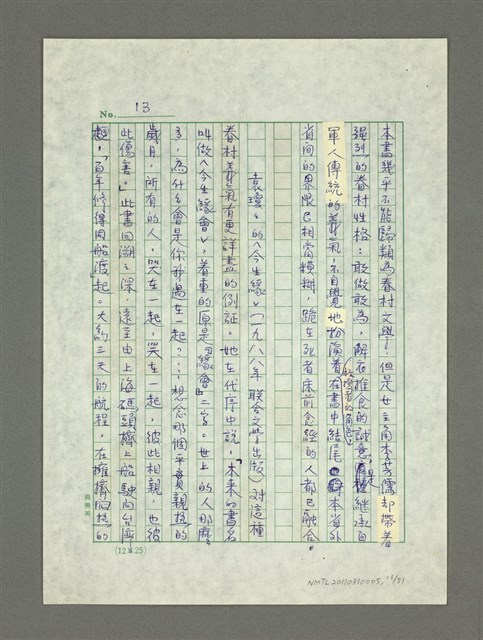 No. 13
本書幾乎不能歸類為眷村文學了。但是女主角李芳儒却帶着
強烈的眷村性格:敢做敢為,解衣推食的誠意,是種繼承自
軍人傳統的義氣,不自覺地扮演着在書中結尾時本省外
救援者的角色,
省間的界限已相當模糊,跪在死者床前念經的人都已融合。
袁瓊瓊的《今生緣》(一九八八年 聯合文學出版)對這種
眷村義氣有更詳盡的例証。她在代序中說,「本來的書名
叫做《今生緣會》,着重的原是『緣會』二字。世上的人那麼
多,為什麼會是你和我遇在一起?…想念那個平實親
歲月,所有的人,哭在一起,笑在一起,彼此相親,也彼
此傷害。」此書回溯之深,遠至由上海碼頭擠上船駛向台灣
起,「百年修得同船渡」起。大約三天的航程,在擁擠的
(12×25)
NMTL20110310005, 13/51